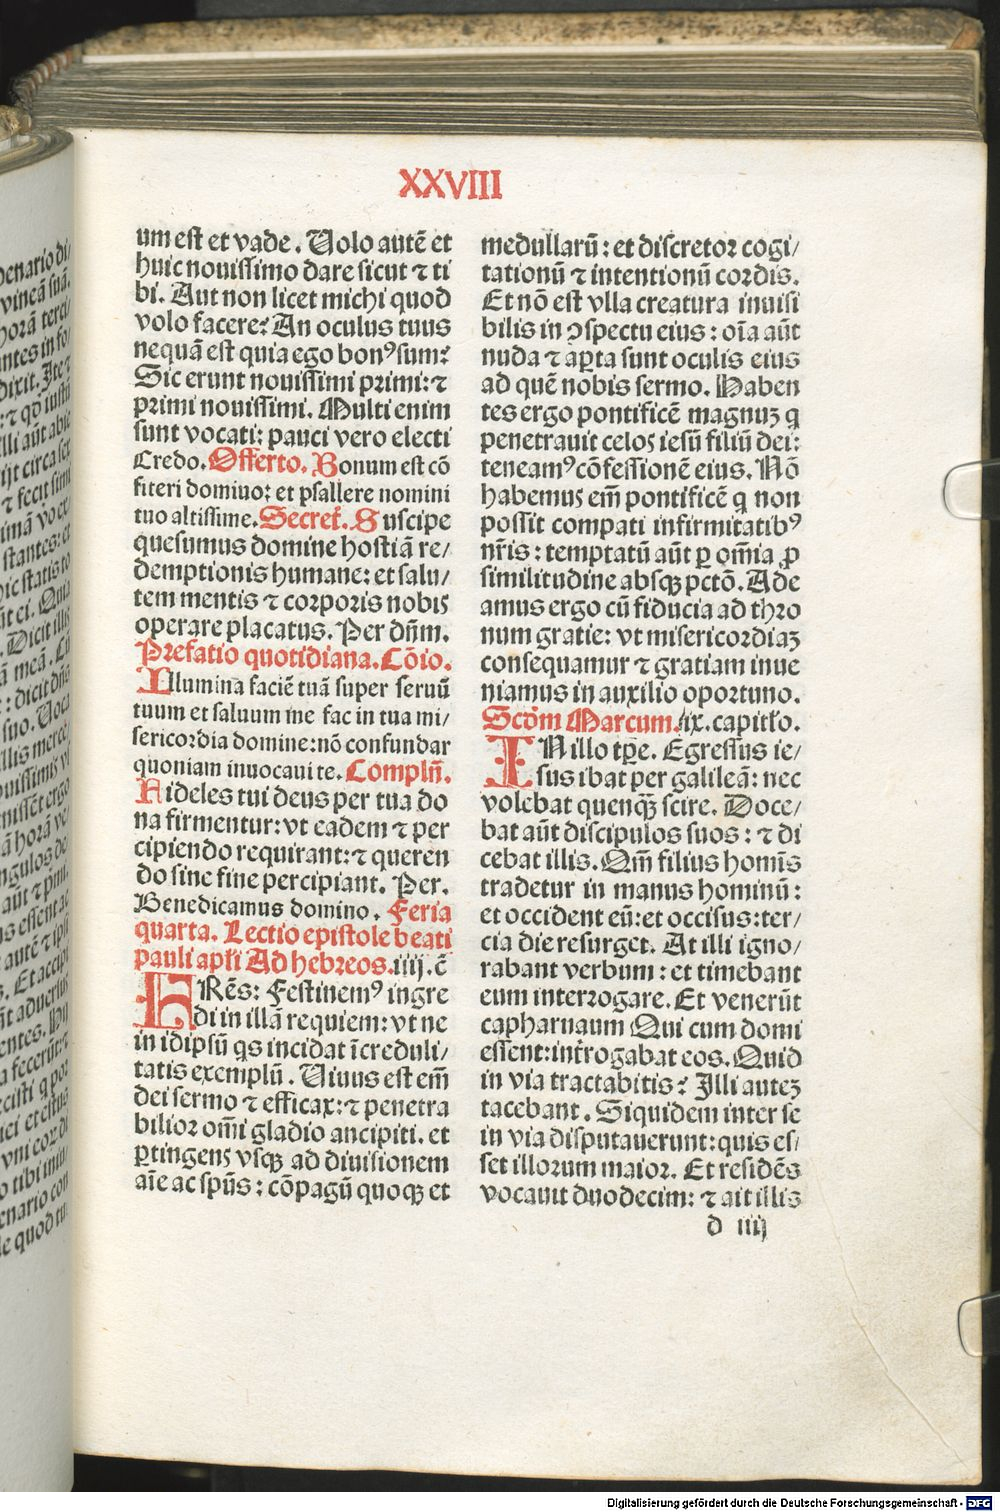 XXVIII
um est et vade. Uolo autē et
huic nouissimo dare sicut ⁊ ti
bi. Aut non licet michi quod
volo facere? An oculus tuus
nequā est quia ego bonꝰ sum?
Sic erunt nouissimi primi: ⁊
primi nouissimi. Multi enim
sunt vocati: pauci vero electi
Credo. Offerto. Bonum est cō
fiteri domino: et psallere nomini
tuo altissime. Secret. Suscipe
quesumus domine hostiā re/
demptionis humane: et salu/
tem mentis ⁊ corporis nobis
operare placatus. Per dn̄m.
Prefatio quotidiana. Cōio.
Illumina faciē tuā super seruū
tuum et saluum me fac in tua mi/
sericordia domine: nō confundar
quoniam inuocaui te. Complen̄.
Fideles tui deus per tua do
na firmentur: vt eadem ⁊ per
cipiendo requirant: ⁊ queren
do sine fine percipiant. Per.
Benedicamus domino. Feria
quarta. Lectio epistole beati
pauli apl̄i Ad hebreos. iiij. c̄
FRēs: Festinemꝰ ingre
di in illā requiem: vt ne
in idipsū qs incidat īcreduli/
tatis exemplū. Uiuus est em̄
dei sermo ⁊ efficax: ⁊ penetra
bilior om̄i gladio ancipiti. et
ꝑtingens vsqꝫ ad diuisionem
aīe ac spūs: cōpagū quoqꝫ et
medullarū: et discretor cogi/
tationū ⁊ intentionū cordis.
Et nō est vlla creatura inuisi
bilis in ↄspectu eius: oīa aūt
nuda ⁊ aꝑta sunt oculis eius
ad quē nobis sermo. Haben
tes ergo pontificē magnuꝫ q
penetrauit celos iesū filiū dei:
teneamꝰ cōfessionē eius. Nō
habemus em̄ pontificē q non
possit compati infirmitatibꝰ
nr̄is: temptatū aūt ꝑ om̄ia ꝓ
similitudine absqꝫ pctō. Ade
amus ergo cū fiducia ad thro
num gratie: vt misericordiaꝫ
consequamur ⁊ gratiam inue
niamus in auxilio oportuno.
Scdm̄ Marcum. ix. capitl̄o.
IN illo tp̄e. Egressus ie/
sus ibat per galileā: nec
volebat quenqꝫ scire. Doce/
bat aūt discipulos suos: ⁊ di
cebat illis. Qm̄ filius homīs
tradetur in manus hominū:
et occident eū: et occisus: ter/
cia die resurget. At illi igno/
rabant verbum: et timebant
eum interrogare. Et venerūt
capharnaum Qui cum domi
essent: int̄rogabat eos. Quid
in via tractabitis? Illi auteꝫ
tacebant. Siquidem inter se
in via disputauerunt: quis es/
set illorum maior. Et residēs
vocauit duodecim: ⁊ ait illis
d iiij
Digitalisierung gefördert durch die Deutsche Forschungsgemeinschaft - DFG